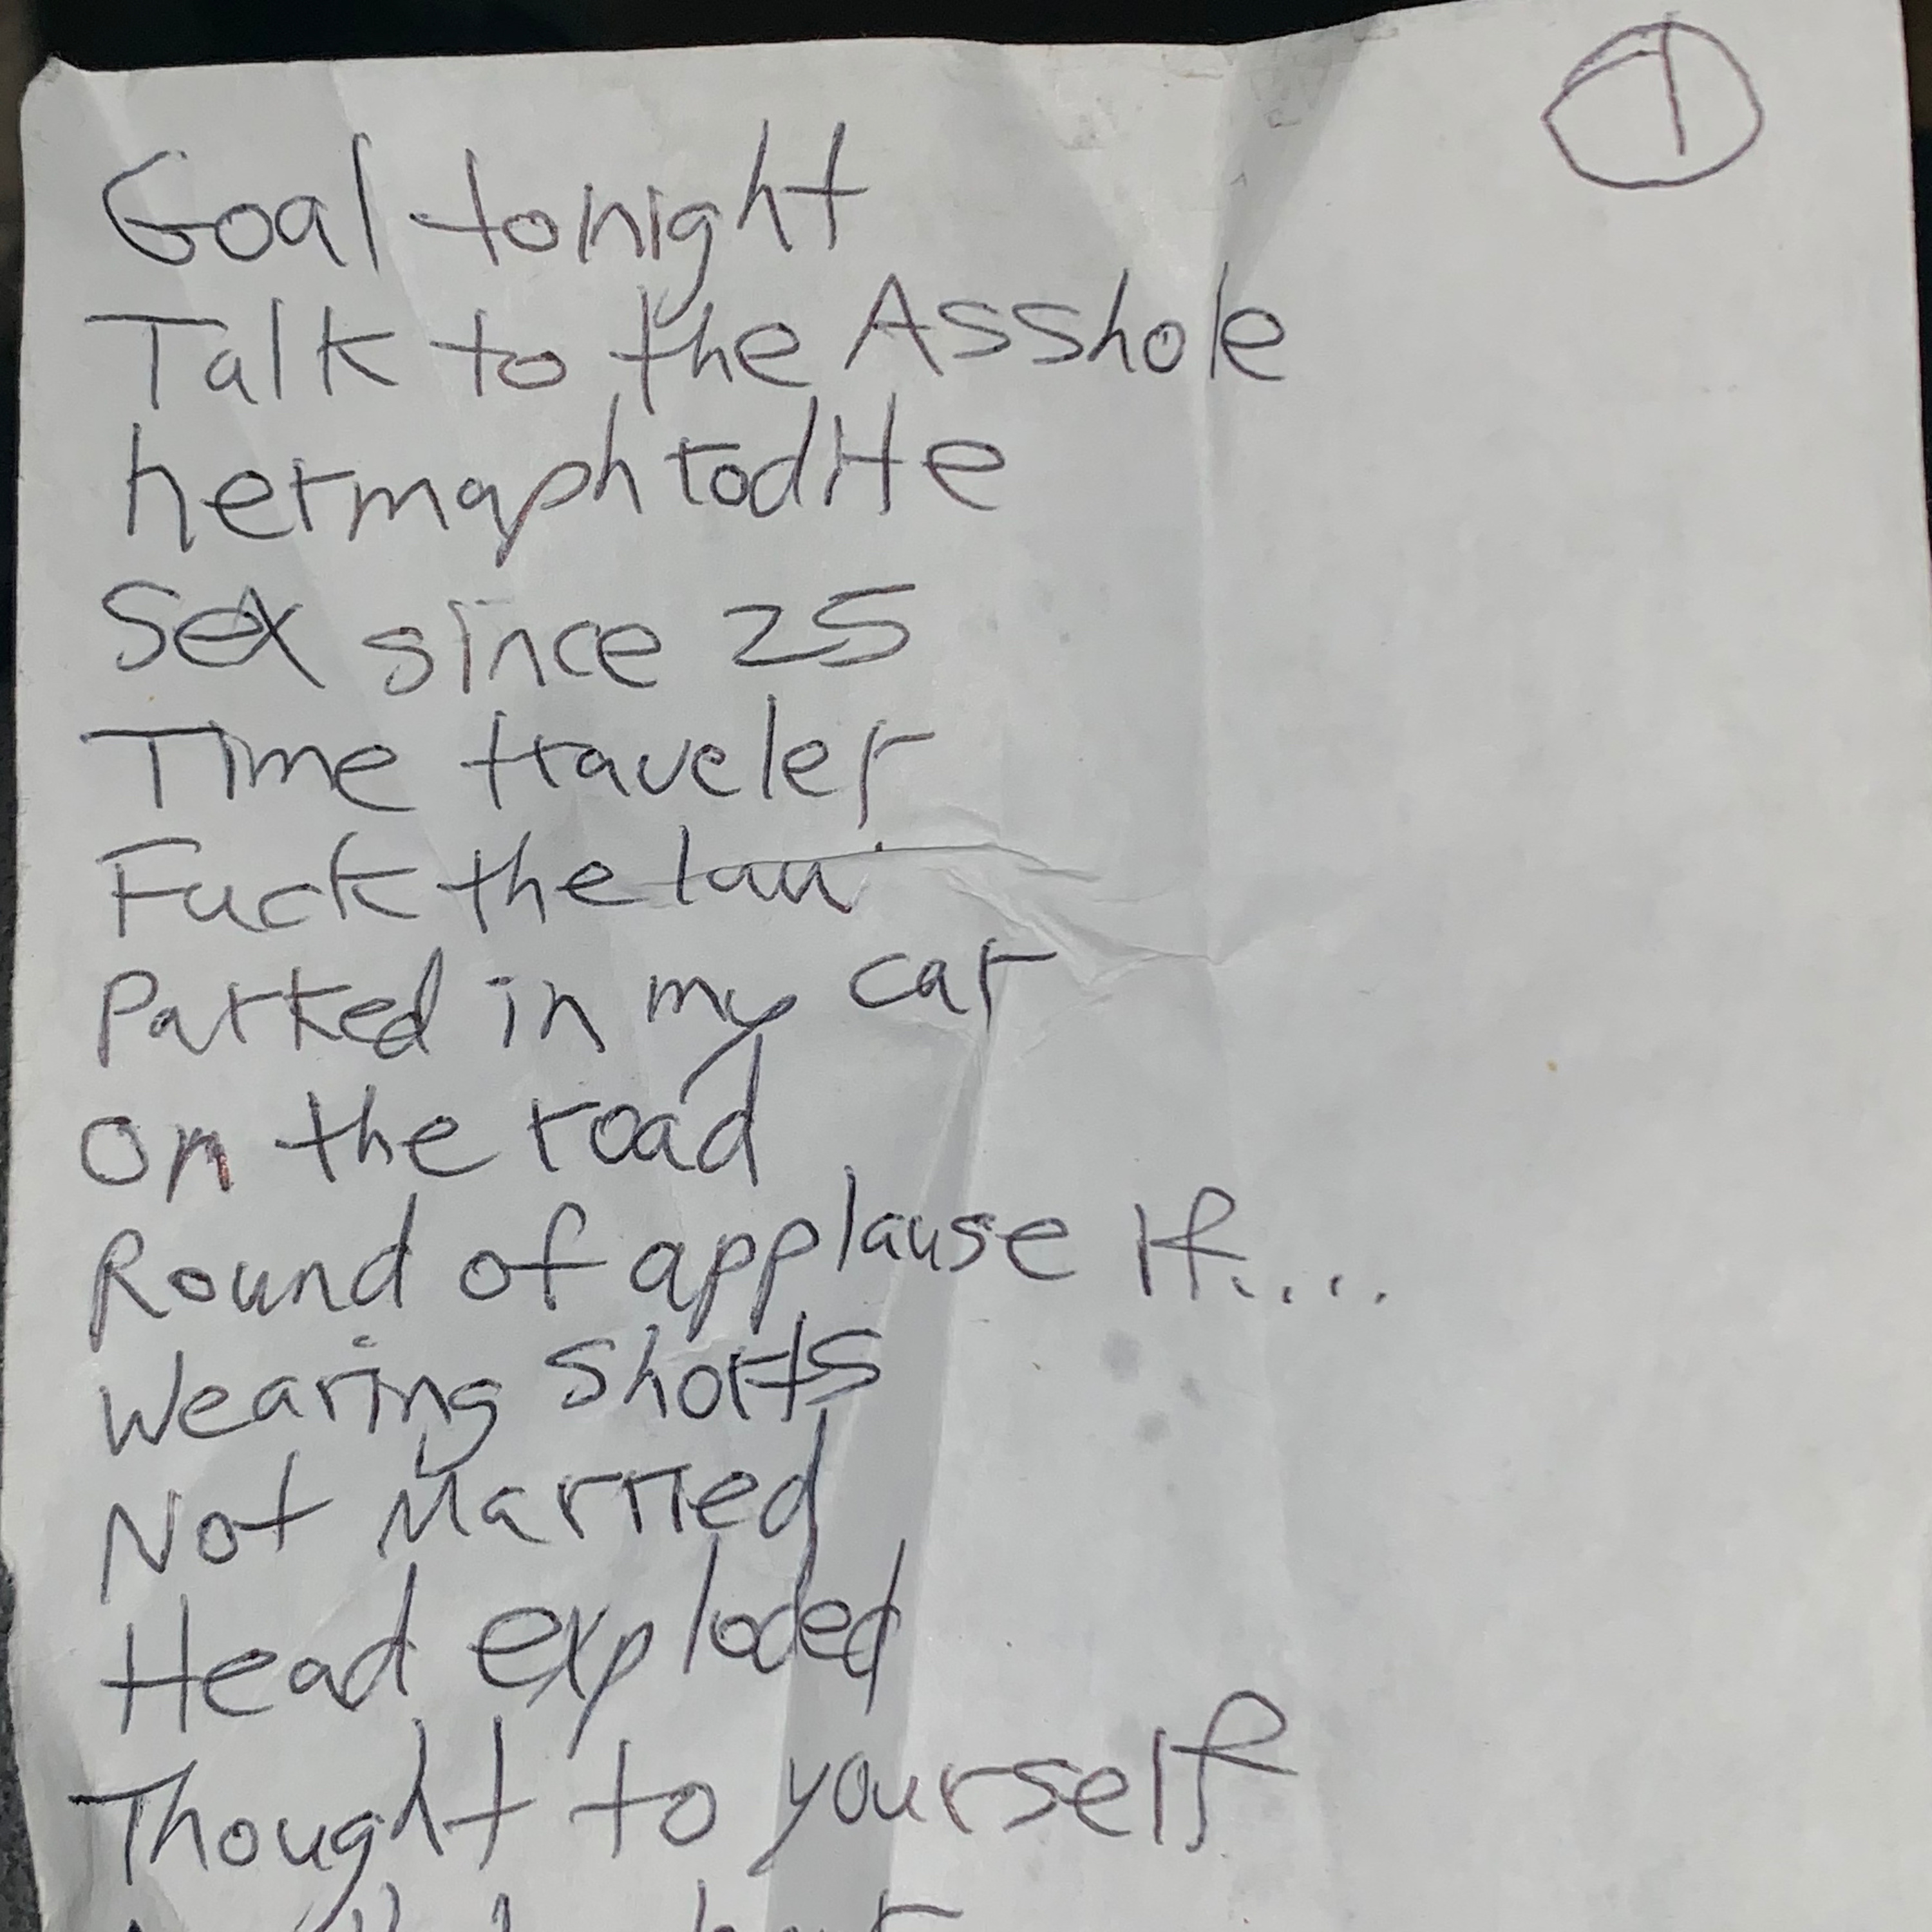 1
Goal tonight
Talk to the Asshole
hermaphrodite
Sex since 25
Time traveler
Fuck the law
Parked in my car
on the road
Round of applause if....
Wearing shorts
Not Married
Head exploded
Thought to yourself